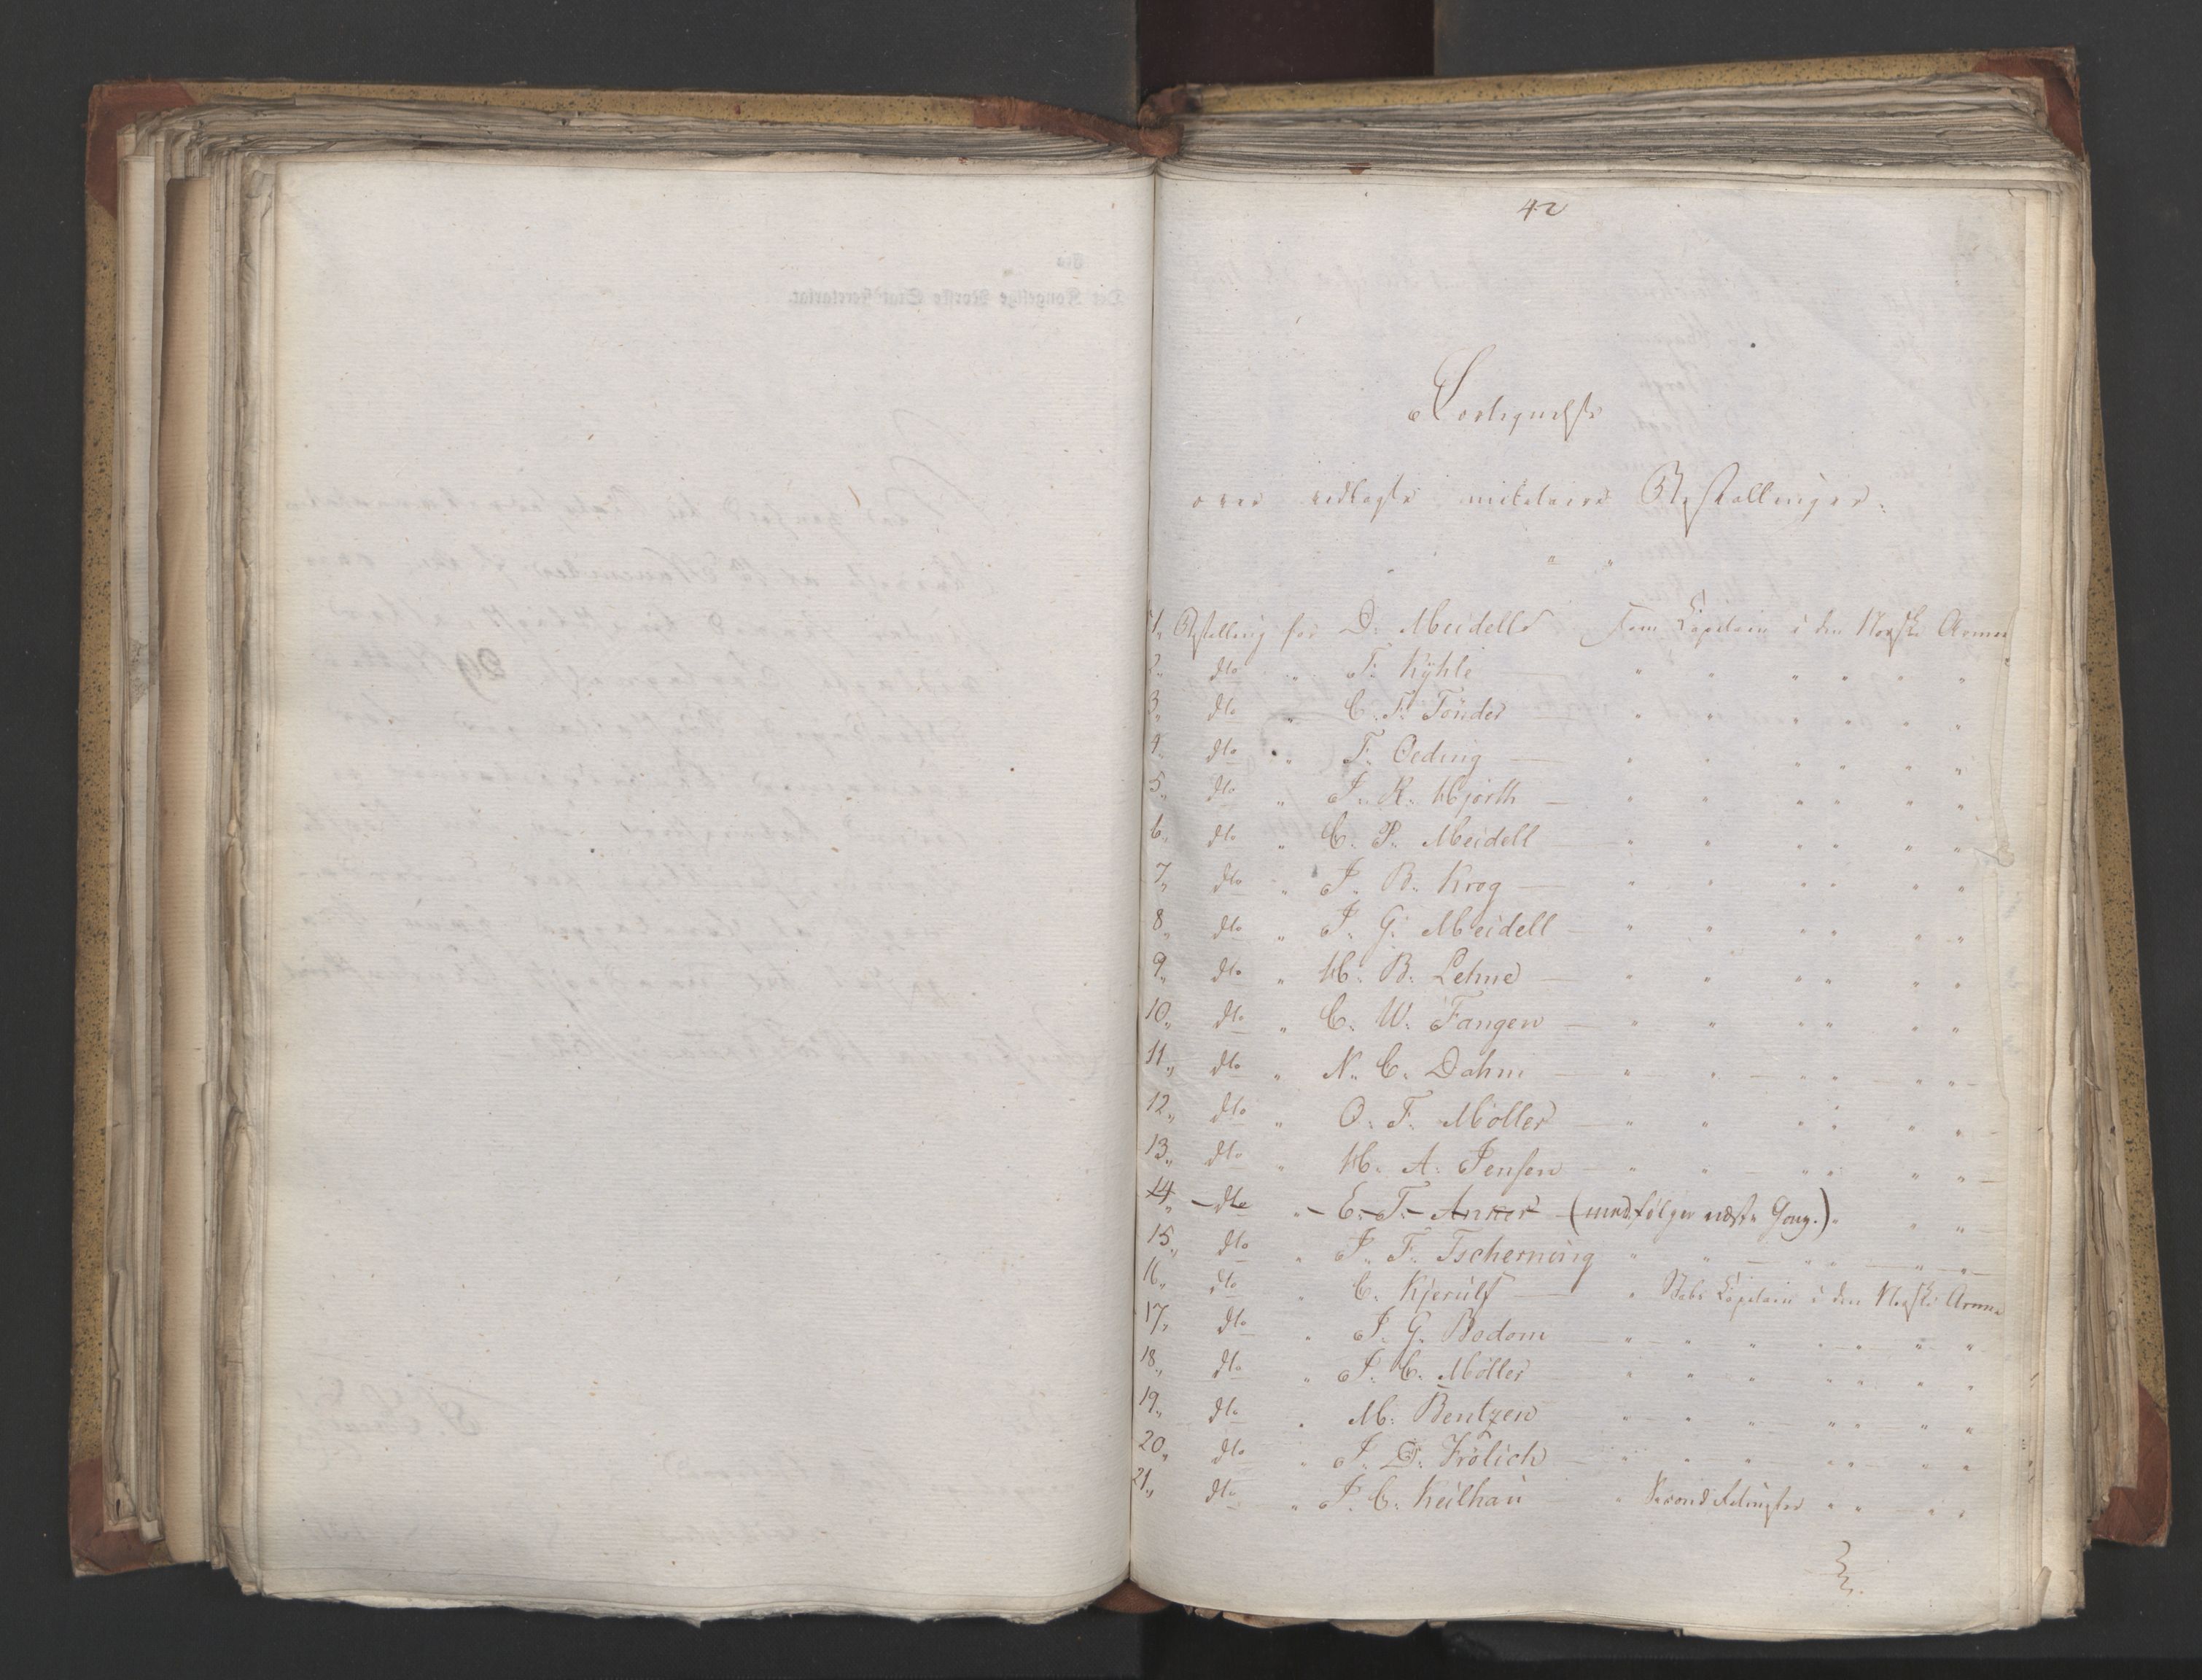 42
Fortegnelse
over vedlagte militaire Bestallinger.
1. Bestalling for D. Meidell som Capitain i den Norske Armee
2. dto " F. Kyhle — " " " " " "
3. dto " C. F. Tönder — " " " " " "
4. dto " F. Oeding — " " " " " "
5. dto " J. R. Hjorth — " " " " " "
6. dto " C. P. Meidell " " " " " "
7. dto " J. B. Krog — " " " " " "
8. dto " J. G. Meidell — " " " " " "
9. dto " H. B. Lehne — " " " " " "
10. dto " C. W. Fangen — " " " " " "
11. dto " N. C. Dahm — " " " " " "
12. dto " O. F. Möller — " " " " " "
13. dto " H. A. Jensen — " " " " " "
14. dto " E. T. Anker (medfølger næste Gang.) " "
15. dto " J. F. Tscherning " " " " " "
16. dto " C. Kjerulf — " Stabs Capitain i den Norske Armee
17. dto " J. G. Bodom — " " " " " " "
18. dto " J. C. Möller " " " " " " "
19. dto " M. Bentzen " " " " " " "
20. dto " J. D. Frölich — " " " " " " "
21. dto " J. C. Keilhau " Second " " " "